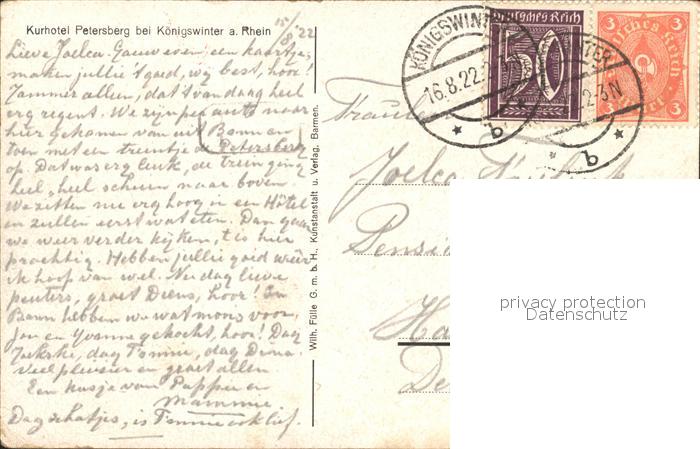 Kurhotel Petersberg bei Königswinter a. Rhein
15/8 '22
Lieve Joelca. Gauw even een kaartje,
maken jullie 't goed, wij best, hoor!
Jammer alleen, dat 't vandaag heel
erg regent. We zijn per auto naar
hier gekomen van uit Bonn en
toen met een treintje de Petersberg
op. Dat was erg leuk, de trein ging
heel, heel schuin naar boven.
We zitten nu erg hoog in een Hôtel
en zullen eerst wat eten. Dan gaan
we weer verder kijken, 't is hier
prachtig. Hebben jullie goed weer
ik hoop van wel. Nu dag lieve
peuters, groet Diens, hoor! In
Bonn hebben we wat moois voor
Jou en Yvonne gekocht, hoor! Dag
dag Tonnie, dag
Veel plezier en groet allen
Een kusje van Pappie en
Mammie
Dag schatjes, is Tonnie ook lief.
Wilh. Fülle G. m. b. H., Kunstanstalt u. Verlag, Barmen.
KÖNIGSWINTER
16.8.22.
* b
Deutsches Reich
50
2-3N
* b *
Deutsches Reich
3 3
Joelca
Pensio
Ha
De
privacy protection
Datenschutz